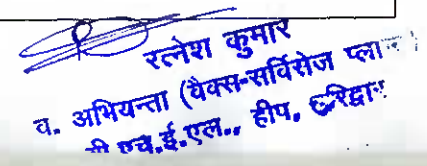 रत्नेश कुमार
व. अभियन्ता (वैक्स-सर्विसेज
एच.ई.एल., हीप, हरिद्वार